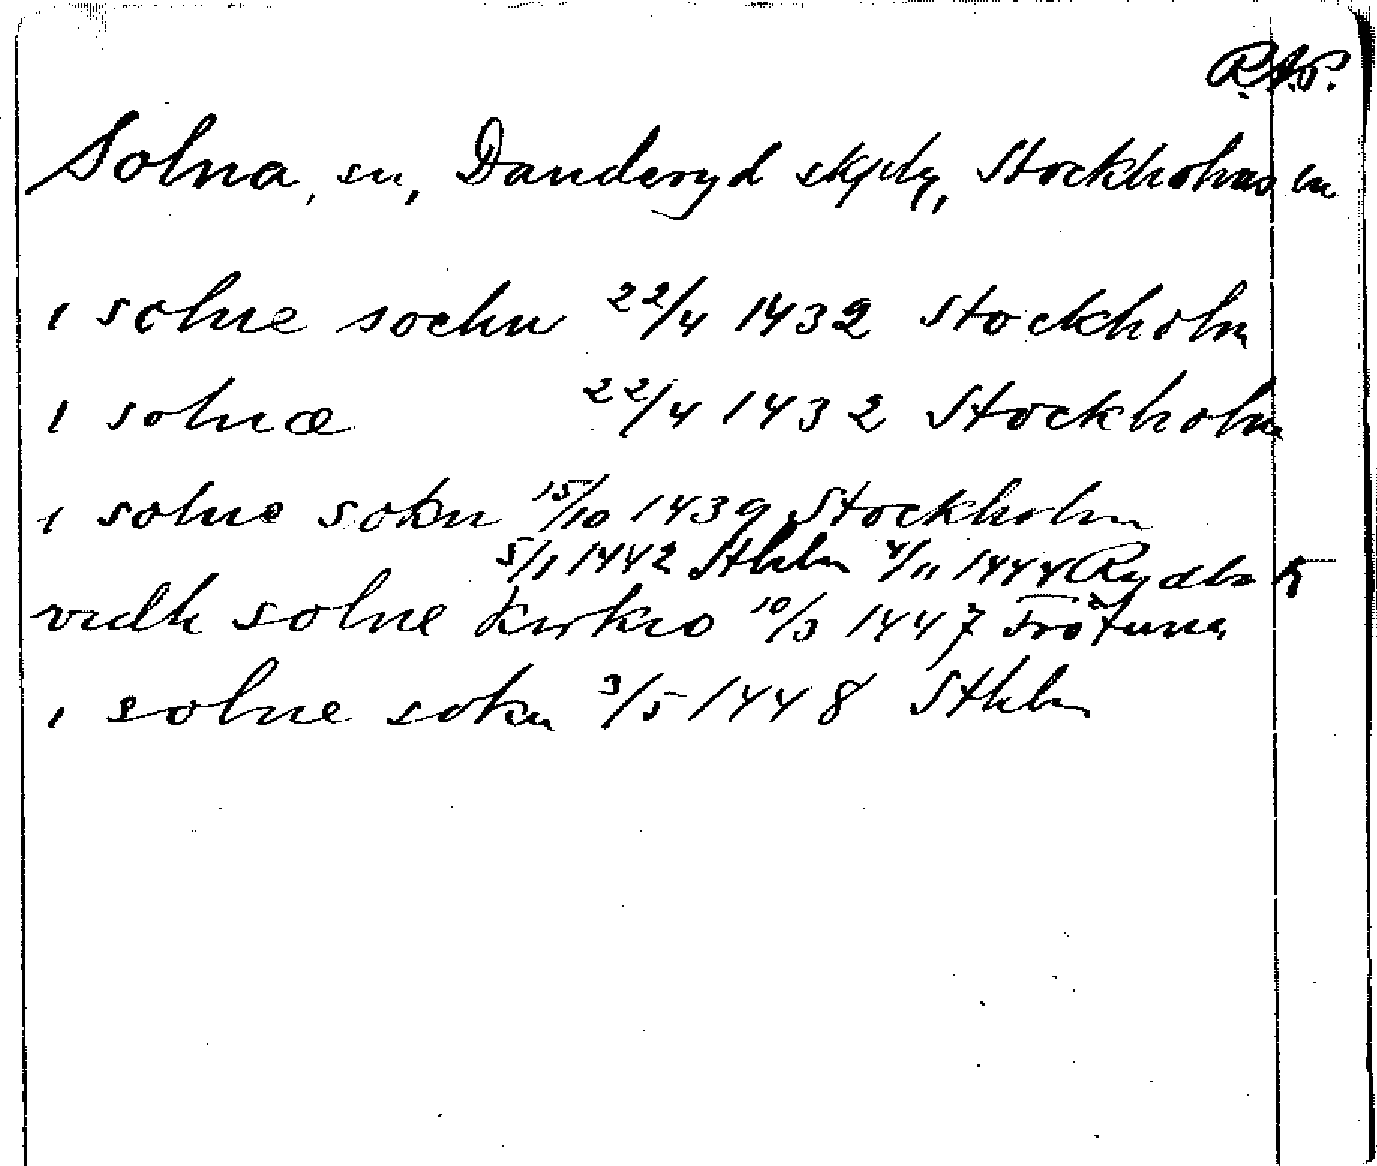 R.A.P.
Solna, sn, Danderyd skplg, Stockholms ln
i solne sochn 22/4 1432 Stockholm
i solnæ 22/4 1432 Stockholm
i solne sokn 15/10 1439 Stockholm
5/1 1442 Sthlm 4/11 1444 Rydbok
vidh solne kirkio 10/3 1447 Frötuna
i solne sokn 3/5 1448 Sthlm